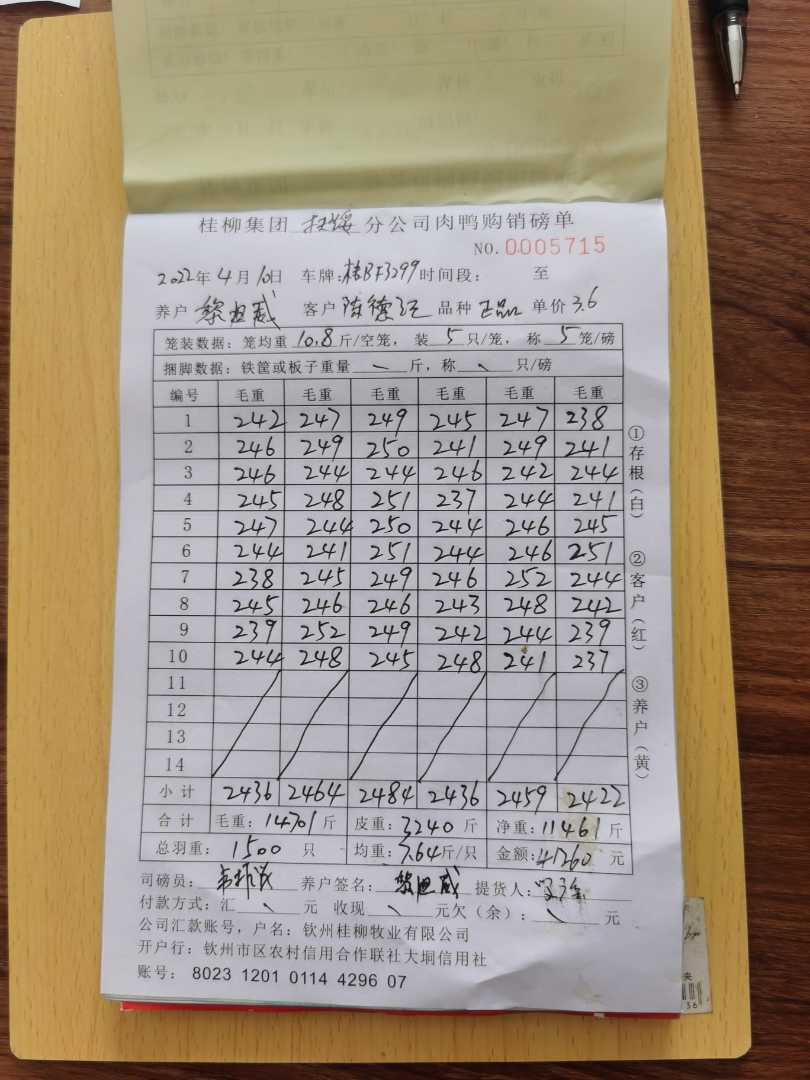 桂柳集团 扶绥 分公司肉鸭购销磅单
NO. 0005715
2022年4月10日 车牌:桂BF3299 时间段: 至
养户 黎旦威 客户 陈德江 品种 正品 单价 3.6
笼装数据: 笼均重 10.8 斤/空笼, 装 5 只/笼, 称 5 笼/磅
捆脚数据: 铁筐或板子重量 斤, 称 只/磅
编号 毛重 毛重 毛重 毛重 毛重 毛重
1 242 247 249 245 247 238
2 246 249 250 241 249 241
3 246 244 244 246 242 244
4 245 248 251 237 244 241
5 247 244 250 244 246 245
6 244 241 251 244 246 251
7 238 245 249 246 252 244
8 245 246 246 243 248 242
9 239 252 249 242 244 239
10 244 248 245 248 241 237
11
12
13
14
小计 2436 2464 2484 2436 2459 2422
合计 毛重: 14701 斤 皮重: 3240 斤 净重: 11461 斤
总羽重: 1500 只 均重: 7.64 斤/只 金额: 41260 元
司磅员: 养户签名: 黎旦威 提货人:
付款方式: 汇 元 收现 元欠(余): 元
公司汇款账号, 户名: 钦州桂柳牧业有限公司
开户行: 钦州市区农村信用合作联社大垌信用社
账号: 8023 1201 0114 4296 07
①存根(白)
②客户(红)
③养户(黄)